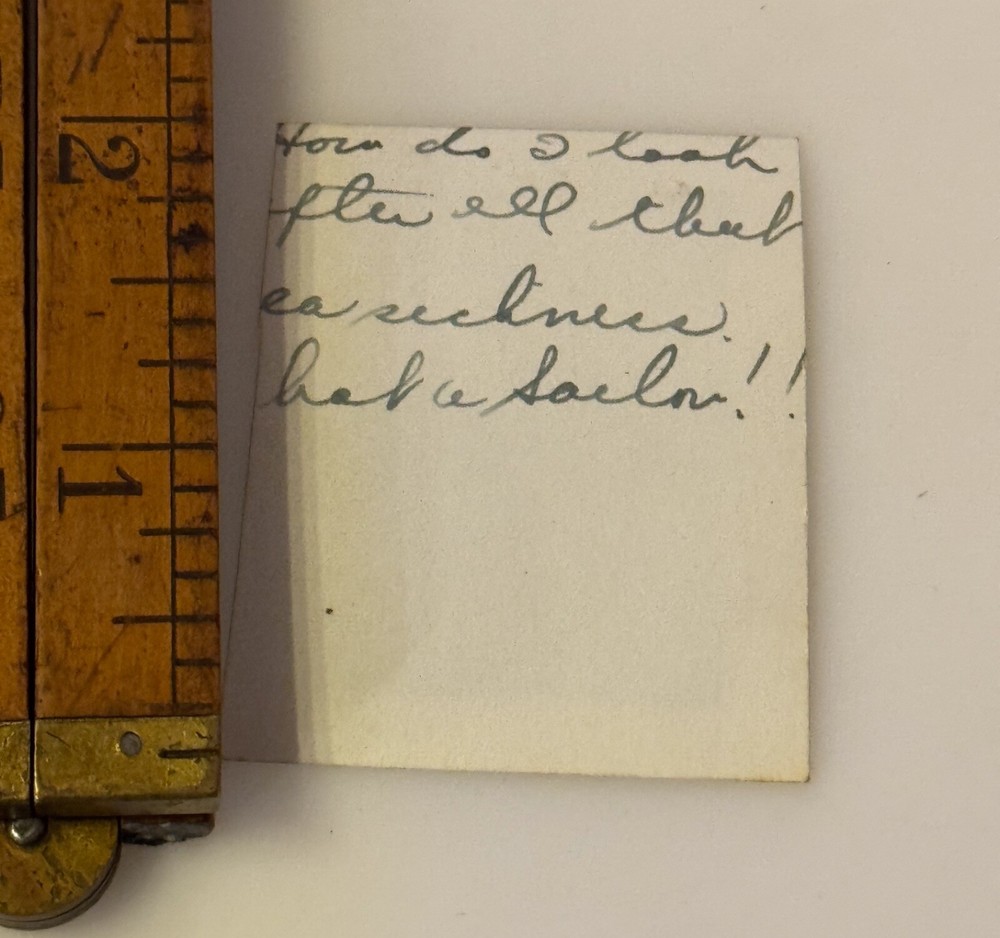 How do I look
fter all that
ea sickness.
hat a Sailor!!
2
1